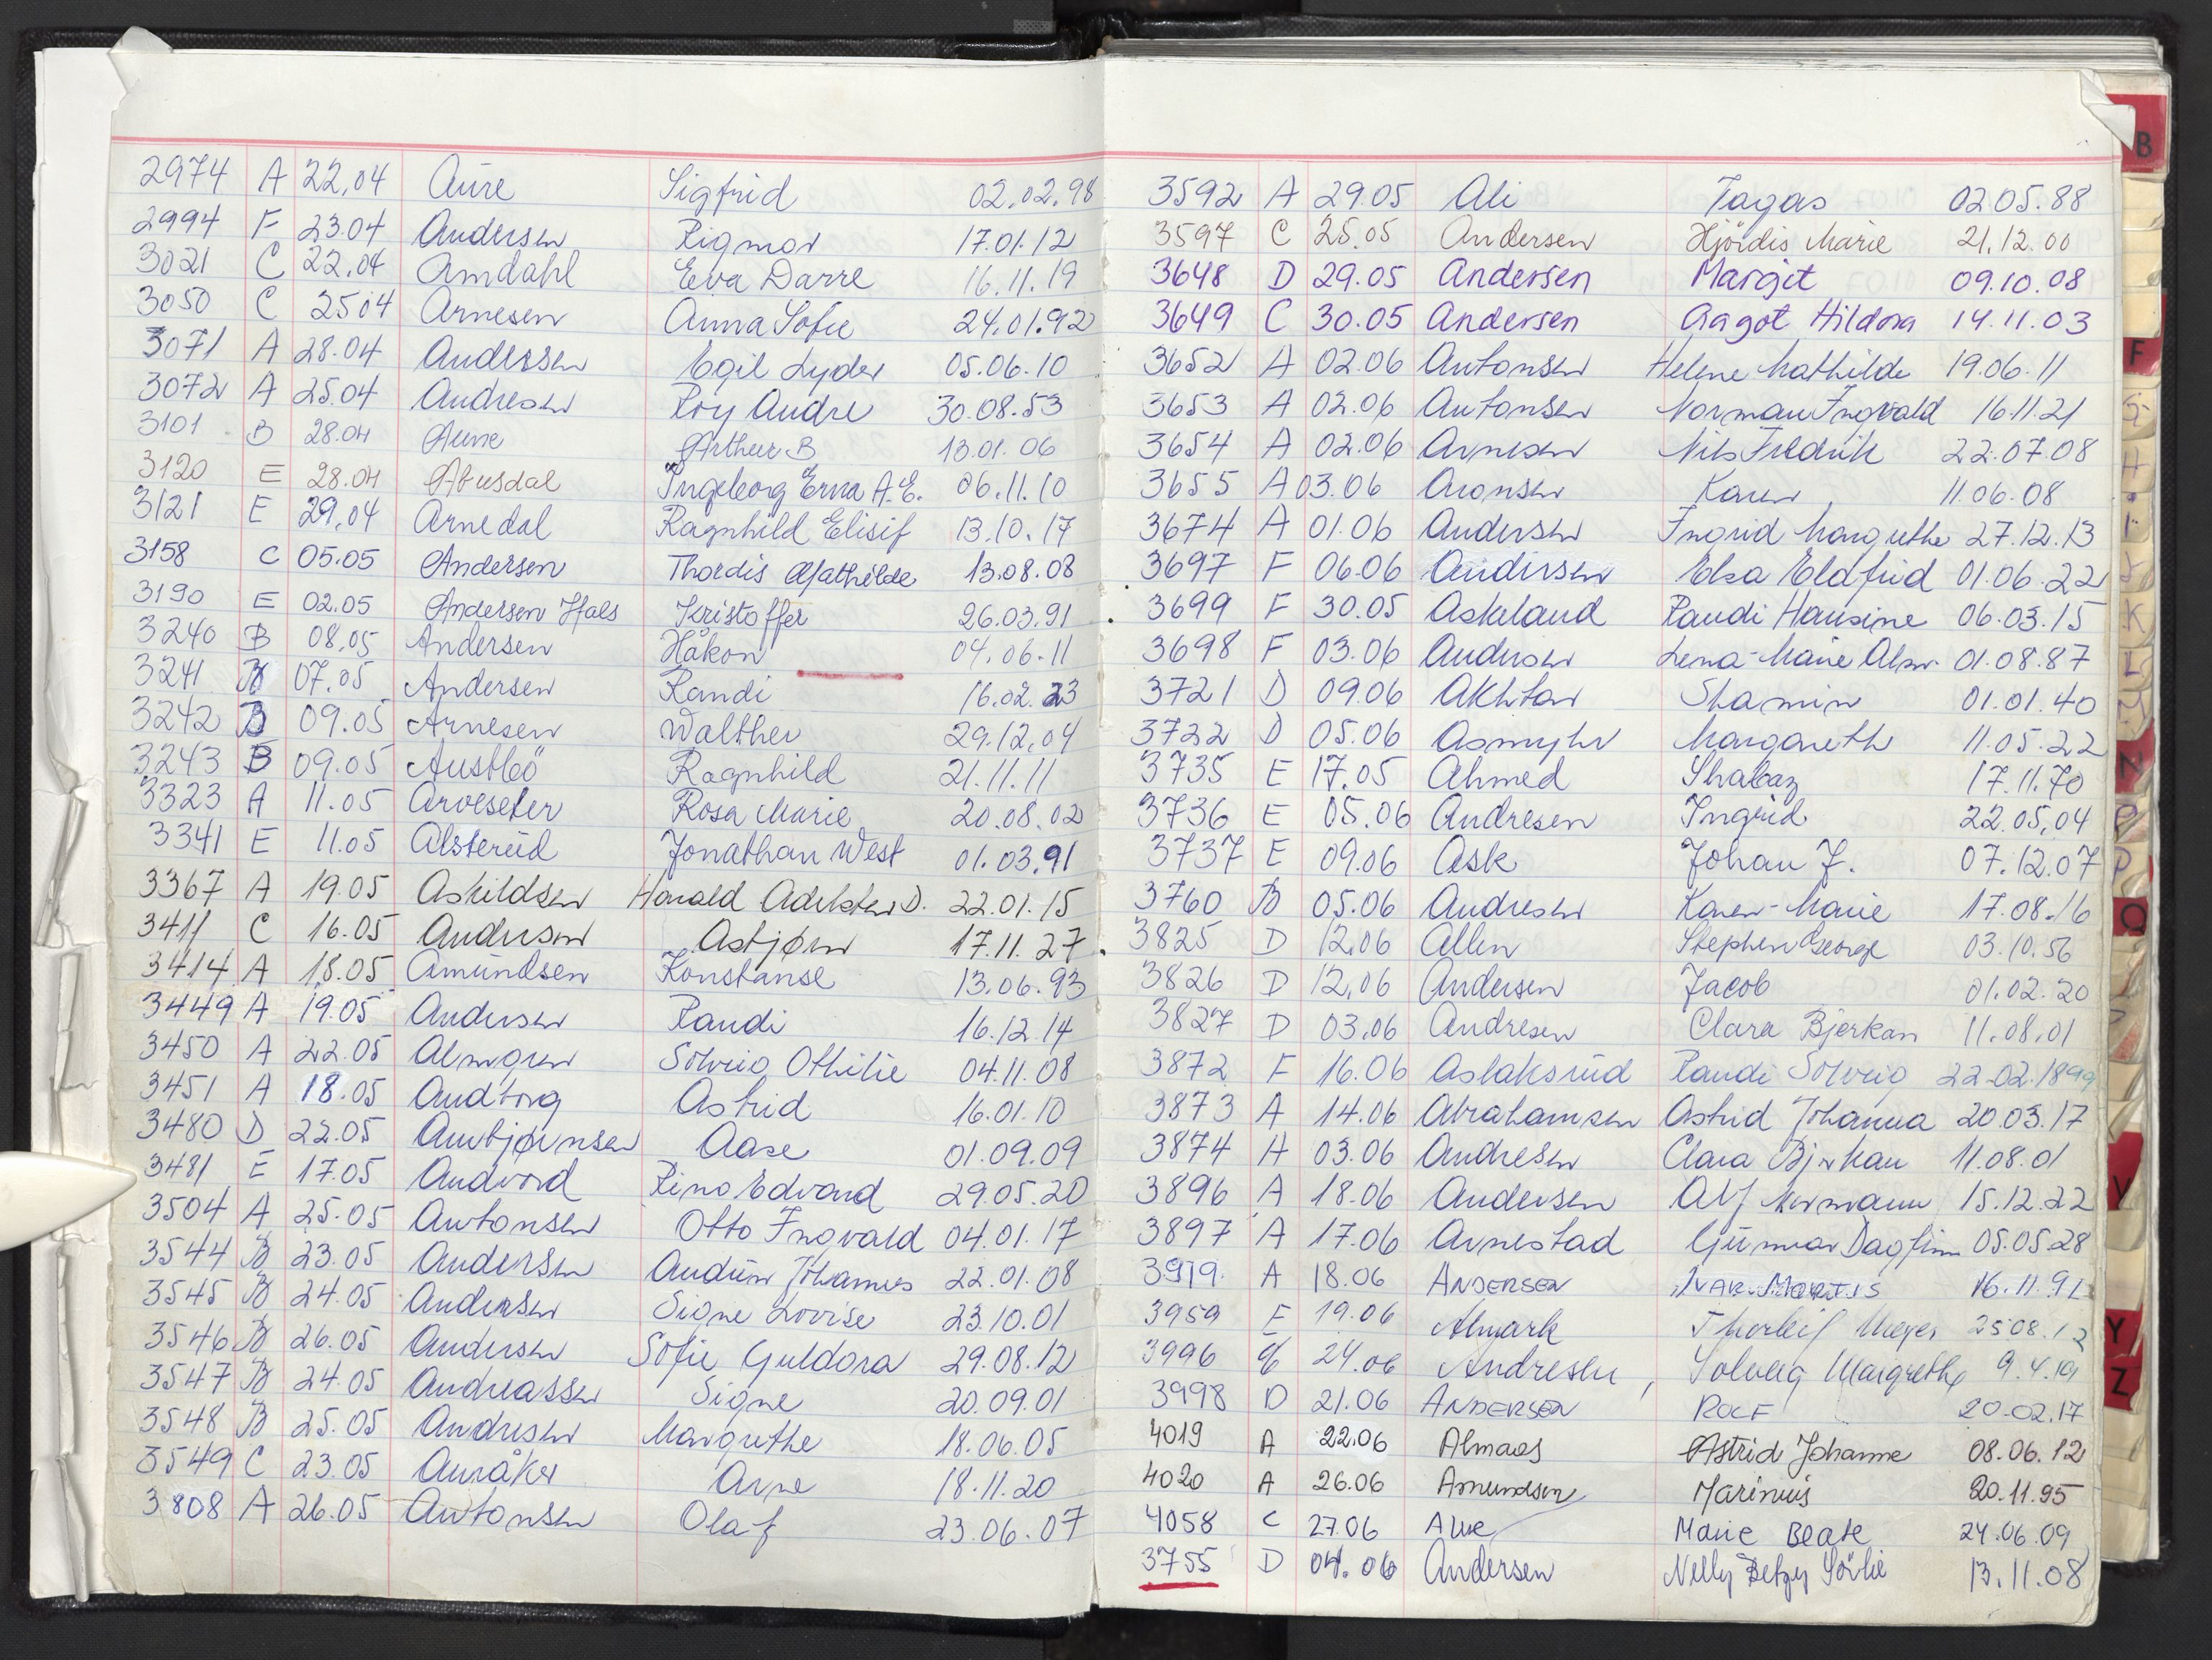 2974 A 22.04 Aure Sigfrid 02.02.98
2994 F 23.04 Andersen Rigmor 17.01.12
3021 C 22.04 Amdahl Eva Darre 16.11.19
3050 C 25 04 Arnesen Anna Sofie 24.01.92
3071 A 28.04 Anderssen Egil Lyder 05.06.10
3072 A 25.04 Andresen Roy Andre 30.08.53
3101 B 28.04 Aune Arthur B 13.01.06
3120 E 28.04 Abusdal Ingeborg Erna A.E. 06.11.10
3121 E 29.04 Arnedal Ragnhild Elisif 13.10.17
3158 C 05.05 Andersen Thordis Mathilde 13.08.08
3190 E 02.05 Andersen Hals Kristoffer 26.03.91
3240 B 08.05 Andersen Håkon 04.06.11
3241 B 07.05 Andersen Randi 16.02.23
3242 B 09.05 Arnesen Walther 29.12.04
3243 B 09.05 Austbö Ragnhild 21.11.11
3323 A 11.05 Arveseter Rosa Marie 20.08.02
3341 E 11.05 Alsterud Jonathan West 01.03.91
3367 A 19.05 Askildsen Harald Adelsten D. 22.01.15
3411 C 16.05 Andersen Asbjørn 17.11.27
3414 A 18.05 Amundsen Konstanse 13.06.93
3449 A 19.05 Andersen Randi 16.12.14
3450 A 22.05 Almgren Solveig Othilie 04.11.08
3451 A 18.05 Andborg Astrid 16.01.10
3480 D 22.05 Ambjørnsen Aase 01.09.09
3481 E 17.05 Andvord Rino Edvard 29.05.20
3504 A 25.05 Antonsen Otto Ingvald 04.01.17
3544 B 23.05 Andersen Audun Johannes 22.01.08
3545 B 24.05 Andersen Signe Lovise 23.10.01
3546 B 26.05 Andersen Sofie Guldora 29.08.12
3547 B 24.05 Andreassen Signe 20.09.01
3548 B 25.05 Andresen Margrethe 18.06.05
3549 C 23.05 Amråker Arne 18.11.20
3808 A 26.05 Antonsen Olaf 23.06.07
3592 A 29.05 Ali Tagas 02.05.88
3597 C 25.05 Andersen Hjördis Marie 21.12.00
3648 D 29.05 Andersen Margit 09.10.08
3649 C 30.05 Andersen Aagot Hildora 14.11.03
3652 A 02.06 Antonsen Helene Mathilde 19.06.11
3653 A 02.06 Antonsen Norman Ingvald 16.11.21
3654 A 02.06 Arnesen Nils Fredrik 22.07.08
3655 A 03.06 Aronsen Karen 11.06.08
3674 A 01.06 Andersen Ingrid Margrethe 27.12.13
3697 F 06.06 Andersen Elsa Eldfrid 01.06.22
3699 F 30.05 Askeland Randi Hansine 06.03.15
3698 F 03.06 Andersen Lena-Marie 01.08.87
3721 D 09.06 Akhtar Shamim 01.01.40
3722 D 05.06 Asmyhr Margareth 11.05.22
3735 E 17.05 Ahmed Shabaz 17.11.70
3736 E 05.06 Andresen Ingrid 22.05.04
3737 E 09.06 Ask Johan J. 07.12.07
3760 B 05.06 Andresen Karen-Marie 17.08.16
3825 D 12.06 Allen Stephen George 03.10.56
3826 D 12.06 Andersen Jacob 01.02.20
3827 D 03.06 Andresen Clara Bjerkan 11.08.01
3872 F 16.06 Aslaksrud Randi Solveig 22.02.1899
3873 A 14.06 Abrahamsen Astrid Johanna 20.03.17
3874 A 03.06 Andresen Clara Bjerkan 11.08.01
3896 A 18.06 Andersen Alf Hermann 15.12.22
3897 A 17.06 Arnestad Gunnar Dagfinn 05.05.28
3919 A 18.06 ANDERSEN 16.11.91
3959 F 19.06 Almark Thorleif Meyer 25 08.12
3996 24.06 Andresen Solveig Margrethe 9.4.19
3998 D 21.06 ANDERSEN ROLF 20.02.17
4019 A 22.06 Almaas Astrid Johanne 08.06.12
4020 A 26.06 Amundsen Marinius 20.11.95
4058 C 27.06 Alve Marie Beate 24.06.09
3755 D 04.06 Andersen Nelly Betzy Sörlie 13.11.08
B
F
G
H
I
J
K
L
M
N
O
P
Q
V
Y
Z